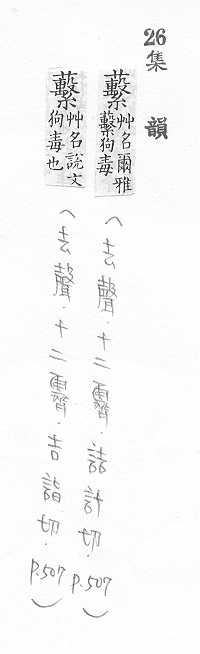 26 集韻
蘻艸名爾雅
蘻狗毒
(去聲.十二霽.詰計切.P.507)
蘻艸名說文
狗毒也
(去聲.十二霽.吉詣切.P.507)